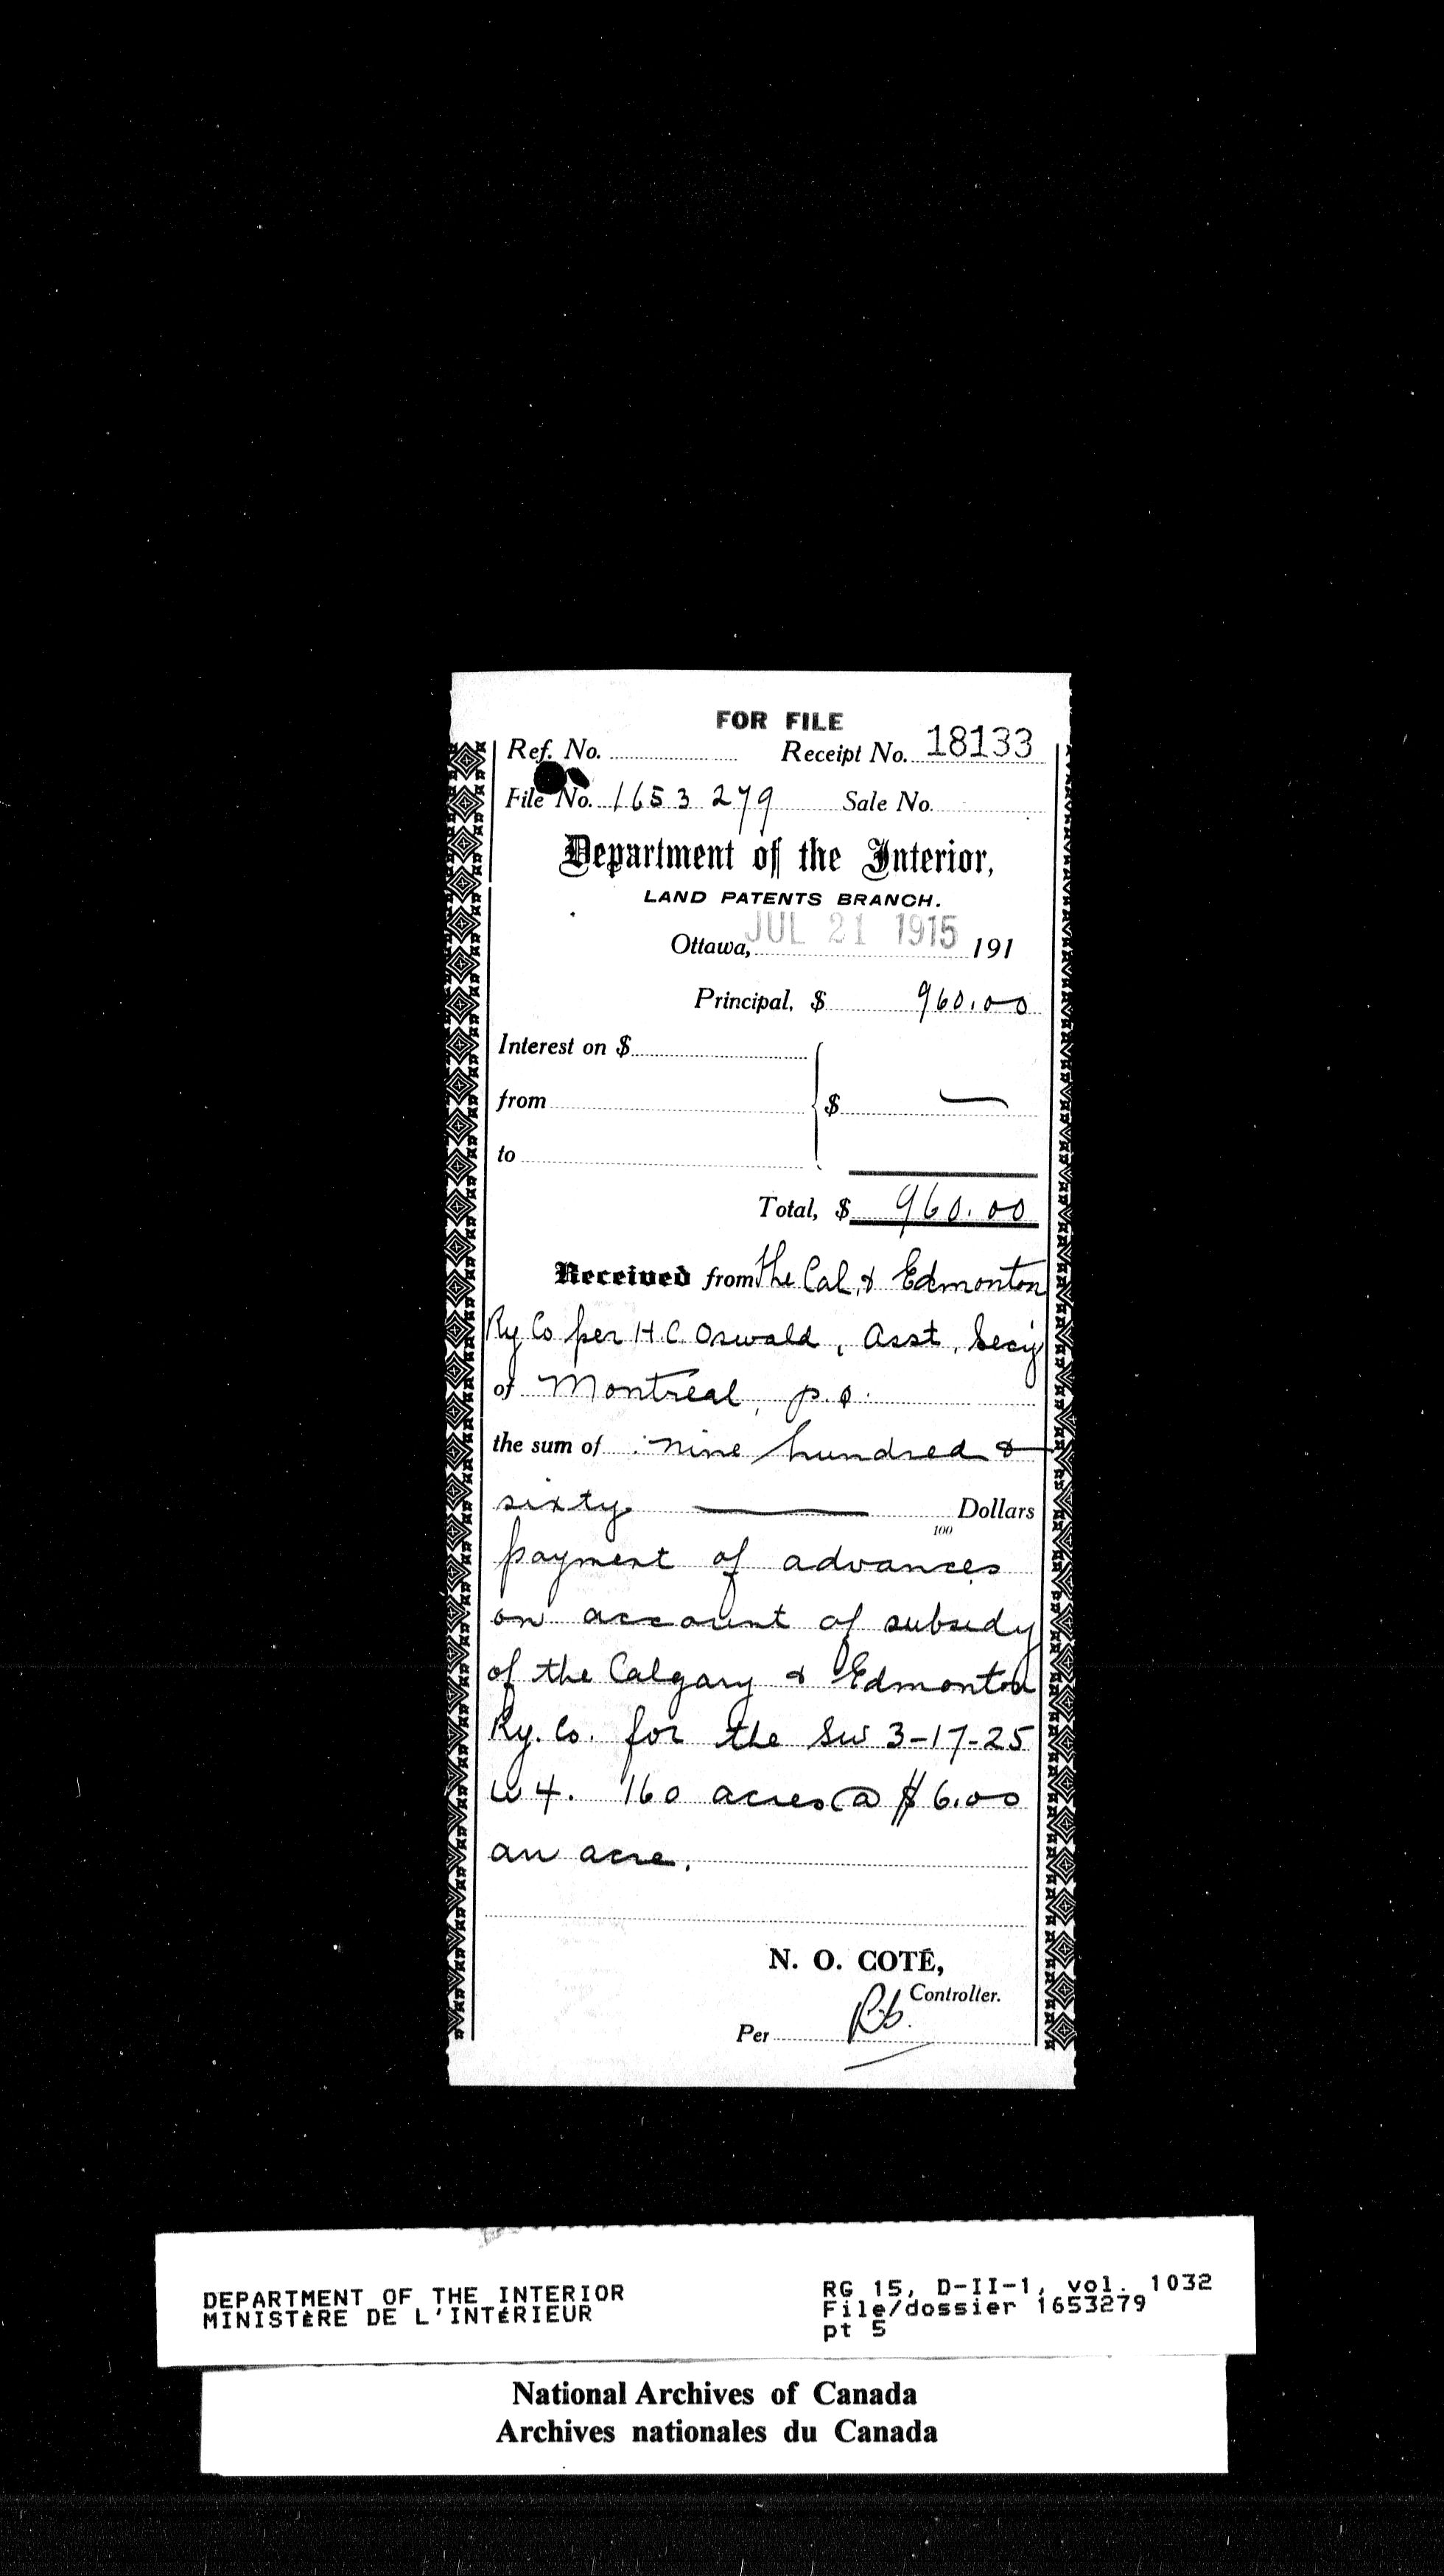 FOR FILE
Ref. No. Receipt No. 18133
File No. 1653279 Sale No.
Department of the Interior,
LAND PATENTS BRANCH.
Ottawa, JUL 21 1915 191
Principal, $ 960.00
Interest on $
from $ —
to
Total, $ 960.00
Received from the Cal. & Edmonton
Ry Co per H.C. Oswald, Asst. Secy
of Montreal, p.q.
the sum of nine hundred &
sixty — Dollars
100
payment of advances
on account of subsidy
of the Calgary & Edmonton
Ry. Co. for the SW 3-17-25
W 4. 160 acres @ $6.00
an acre.
N. O. COTÉ,
Controller.
Per
DEPARTMENT OF THE INTERIOR
MINISTÈRE DE L'INTÉRIEUR
RG 15, D-II-1, vol. 1032
File/dossier 1653279
pt 5
National Archives of Canada
Archives nationales du Canada